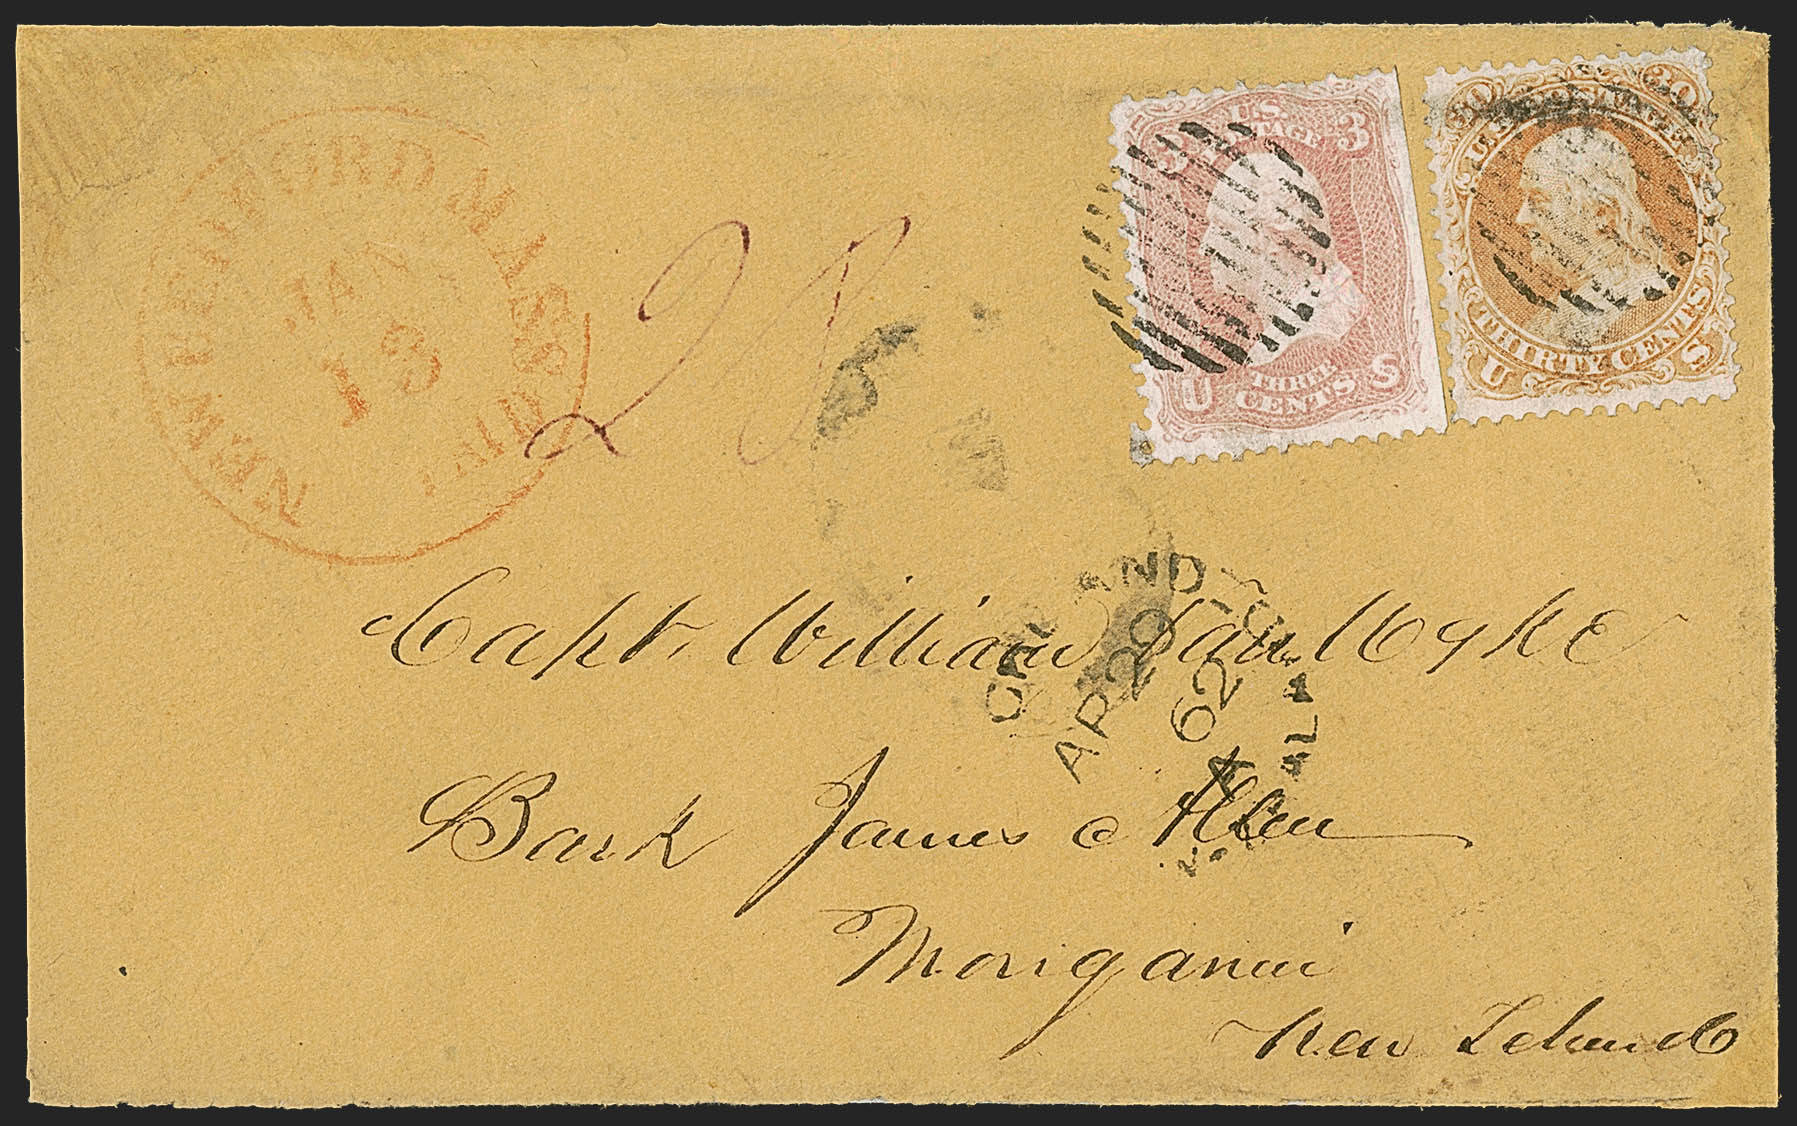 NEW BEDFORD MASS
JAN
13
PAID
28
3 U.S. POSTAGE 3
U THREE CENTS S
30 30
U.S. POSTAGE
U THIRTY CENTS S
AP 20
62
Capt. William Van Wyke
Bark James Allen
Monganui
New Zeland